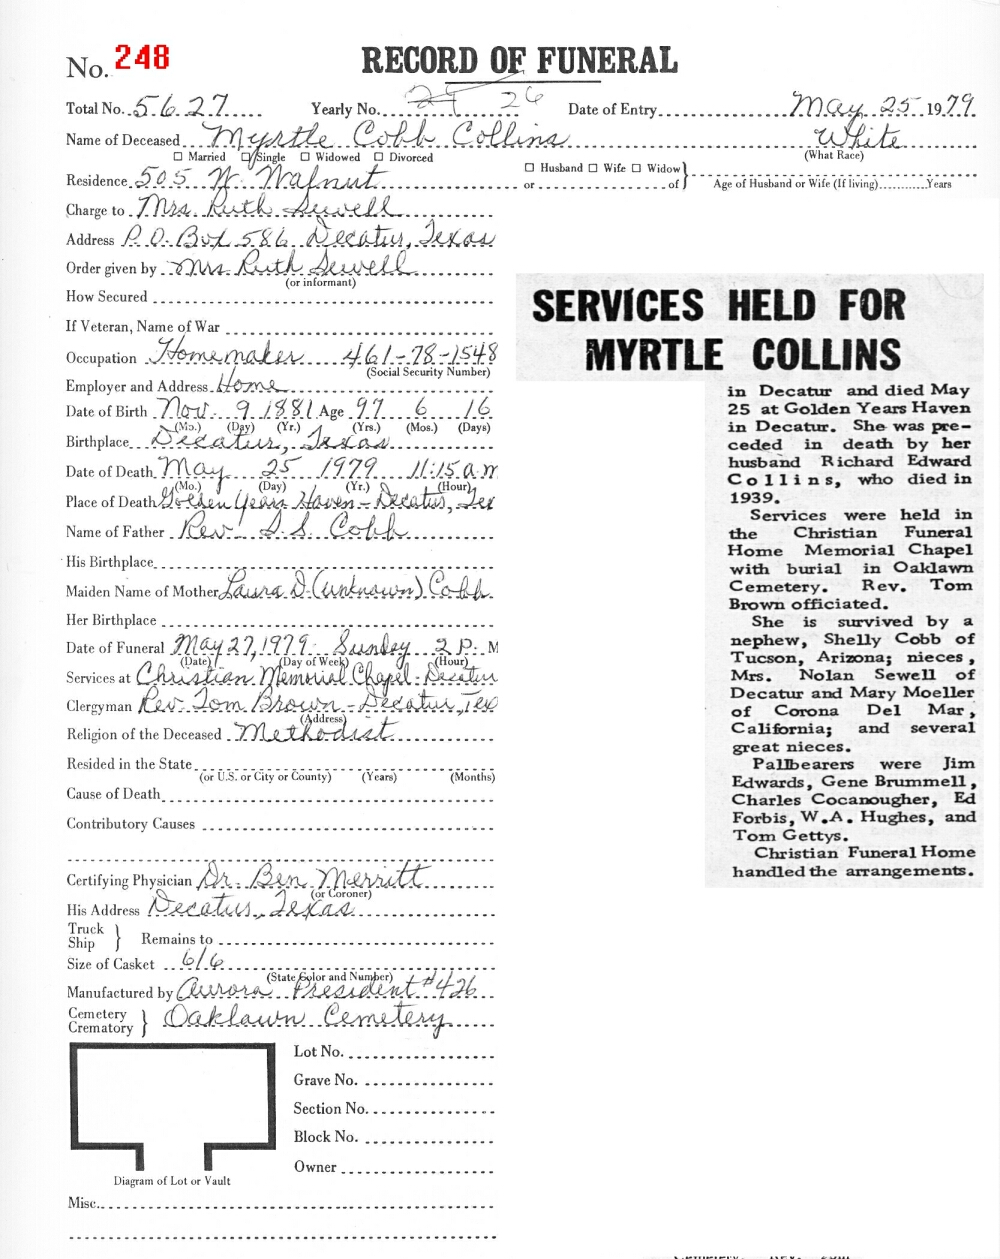 No. 248 RECORD OF FUNERAL
Total No. 5627 Yearly No. 26 Date of Entry May 25 1979
Name of Deceased Myrtle Cobb Collins White
☐ Married ☑ Single ☐ Widowed ☐ Divorced (What Race)
Residence 505 W. Walnut ☐ Husband ☐ Wife ☐ Widow
or of Age of Husband or Wife (If living) Years
Charge to Mrs. Ruth Sewell
Address P.O. Box 586 Decatur, Texas
Order given by Mrs Ruth Sewell
(or informant)
How Secured
If Veteran, Name of War
Occupation Homemaker 461-78-1548
(Social Security Number)
Employer and Address Home
Date of Birth Nov. 9 1881 Age 97 6 16
(Mo.) (Day) (Yr.) (Yrs.) (Mos.) (Days)
Birthplace Decatur, Texas
Date of Death May 25 1979 11:15 a m
(Mo.) (Day) (Yr.) (Hour)
Place of Death Golden Years Haven - Decatur, Tex
Name of Father Rev. S.S. Cobb
His Birthplace
Maiden Name of Mother Laura D. (unknown) Cobb
Her Birthplace
Date of Funeral May 27, 1979 Sunday 2 P. M
(Date) (Day of Week) (Hour)
Services at Christian Memorial Chapel - Decatur
Clergyman Rev. Tom Brown - Decatur, Tex
(Address)
Religion of the Deceased Methodist
Resided in the State
(or U.S. or City or County) (Years) (Months)
Cause of Death
Contributory Causes
Certifying Physician Dr. Ben Merritt
(or Coroner)
His Address Decatur, Texas
Truck
Ship } Remains to
Size of Casket 6/6
(State Color and Number)
Manufactured by Aurora President #426
Cemetery
Crematory } Oaklawn Cemetery
Lot No.
Grave No.
Section No.
Block No.
Owner
Diagram of Lot or Vault
Misc.
SERVICES HELD FOR
MYRTLE COLLINS
in Decatur and died May
25 at Golden Years Haven
in Decatur. She was pre-
ceded in death by her
husband Richard Edward
Collins, who died in
1939.
Services were held in
the Christian Funeral
Home Memorial Chapel
with burial in Oaklawn
Cemetery. Rev. Tom
Brown officiated.
She is survived by a
nephew, Shelly Cobb of
Tucson, Arizona; nieces,
Mrs. Nolan Sewell of
Decatur and Mary Moeller
of Corona Del Mar,
California; and several
great nieces.
Pallbearers were Jim
Edwards, Gene Brummell,
Charles Cocanougher, Ed
Forbis, W.A. Hughes, and
Tom Gettys.
Christian Funeral Home
handled the arrangements.